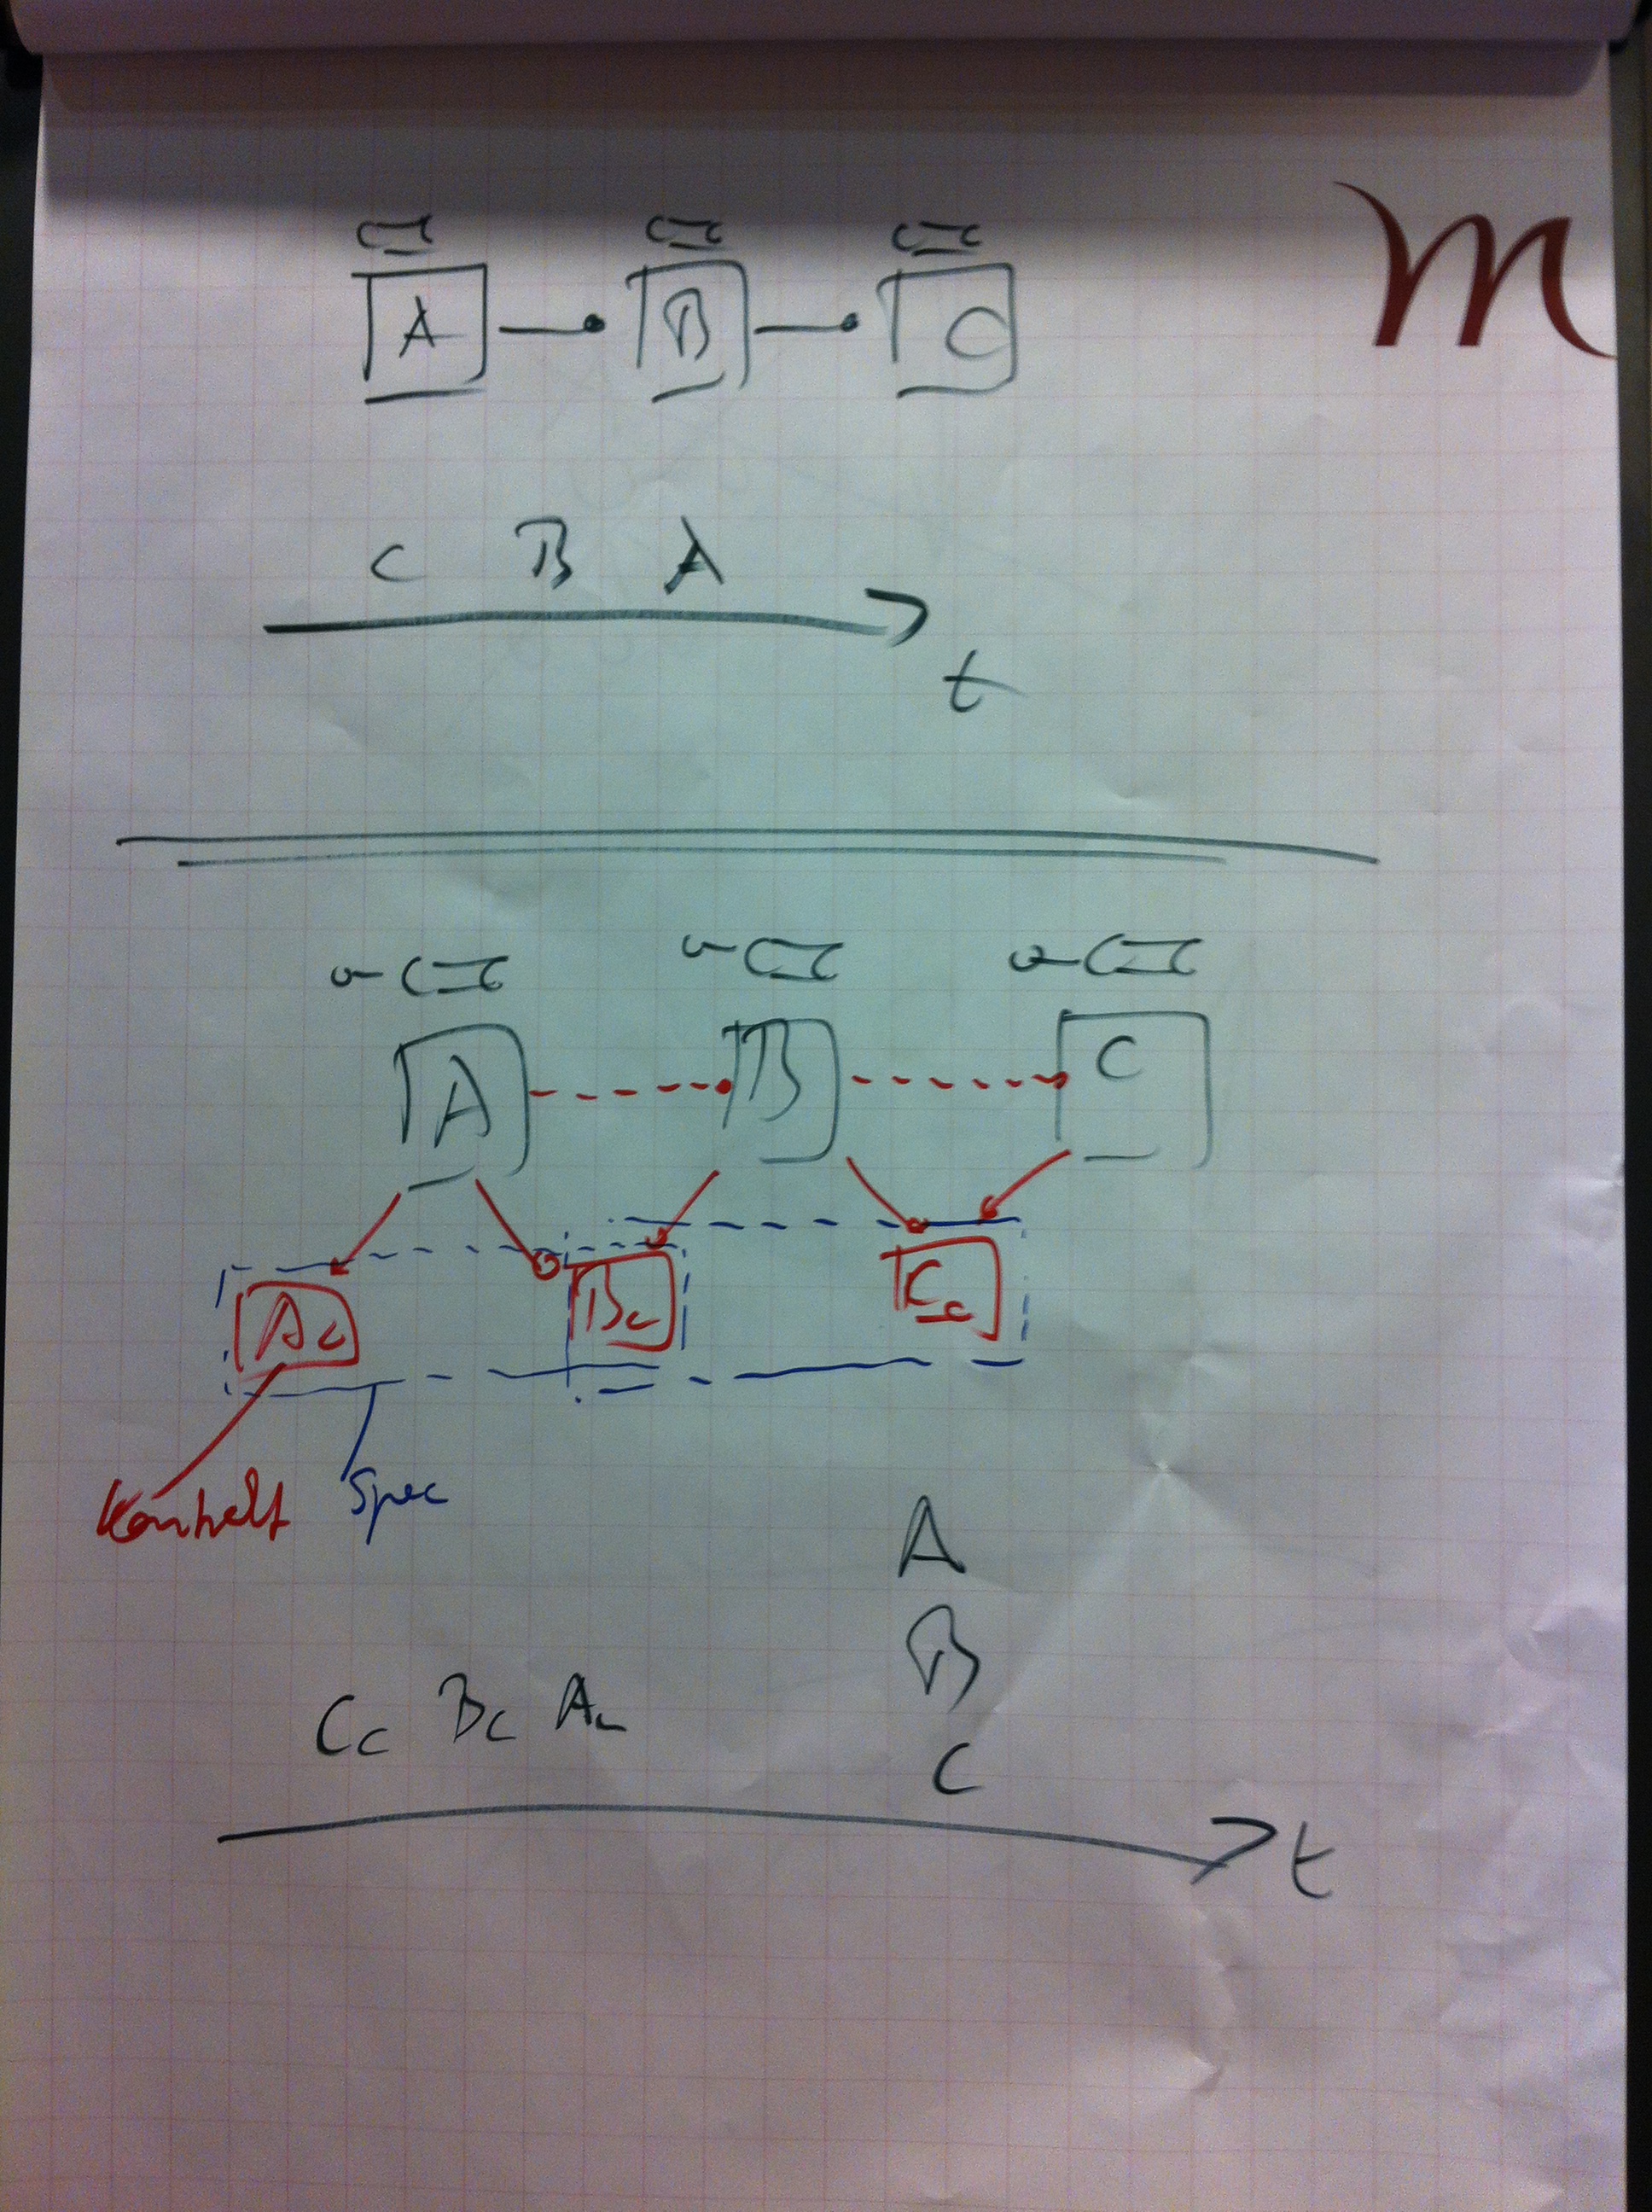 m
A B C
C B A
t
A B C
Ac Bc Cc
Kontrakt Spec
A
B
C
Cc Bc Ac
t